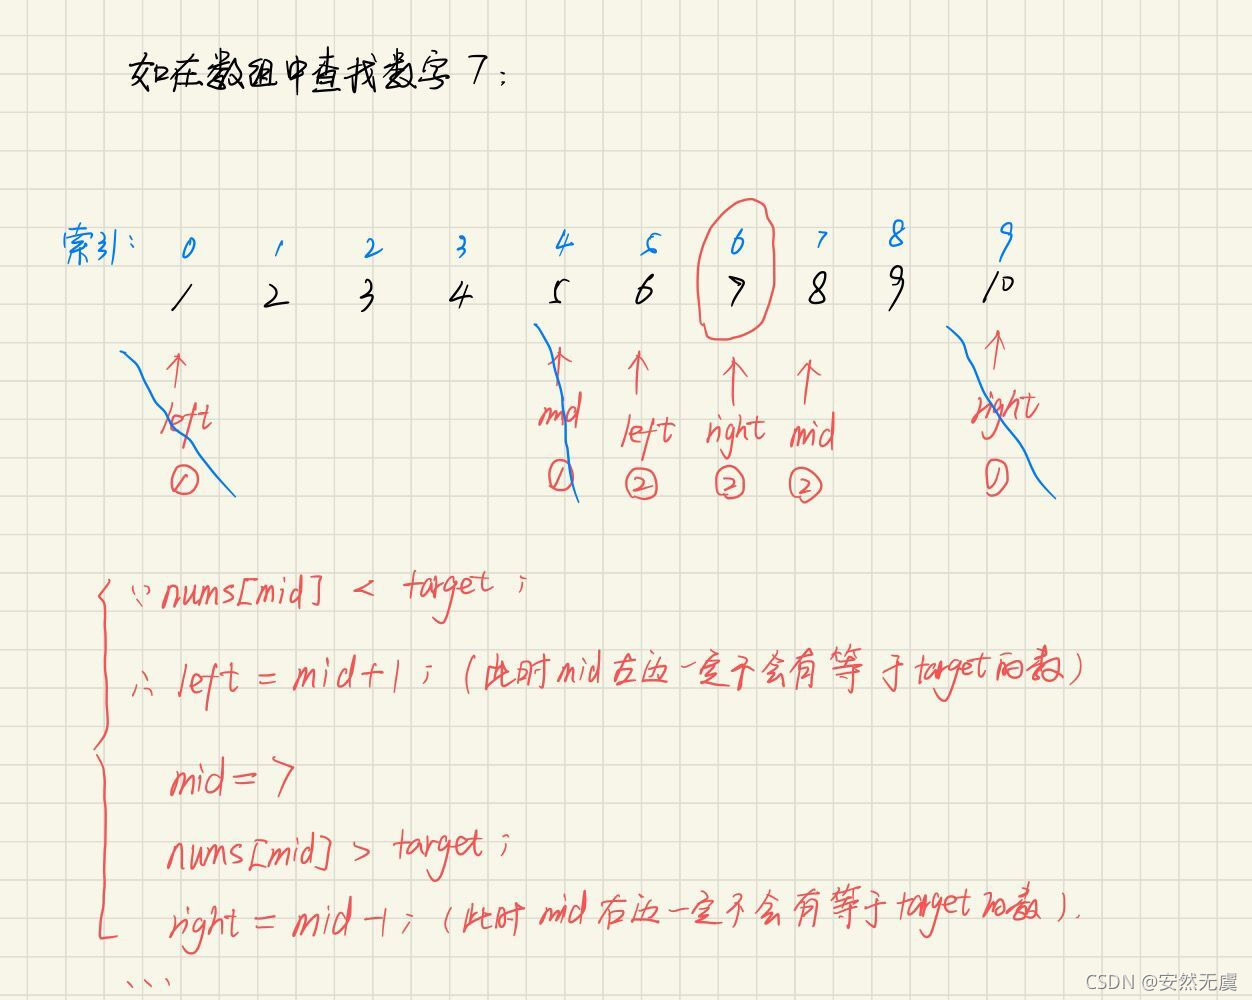 如在数组中查找数字7:
索引: 0 1 2 3 4 5 6 7 8 9
1 2 3 4 5 6 7 8 9 10
left mid left right mid right
① ① ② ② ② ①
∵ nums[mid] < target;
∴ left = mid+1; (此时mid左边一定不会有等于target的数)
mid=7
nums[mid] > target;
right = mid-1; (此时mid右边一定不会有等于target的数).
...
CSDN @安然无虞